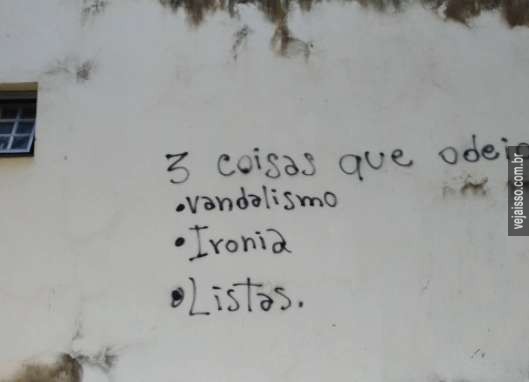 3 coisas que odeio
•vandalismo
•Ironia
•Listas.
vejaisso.com.br